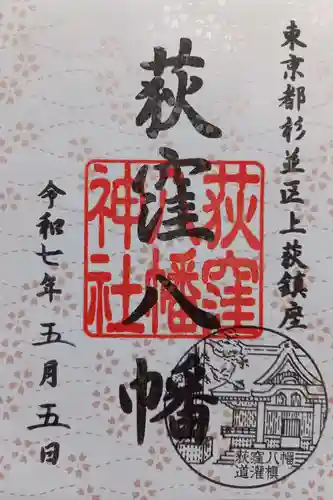 東京都杉並区上荻鎮座
荻窪八幡
荻窪
八幡
神社
令和七年五月五日
荻窪八幡
道灌槙